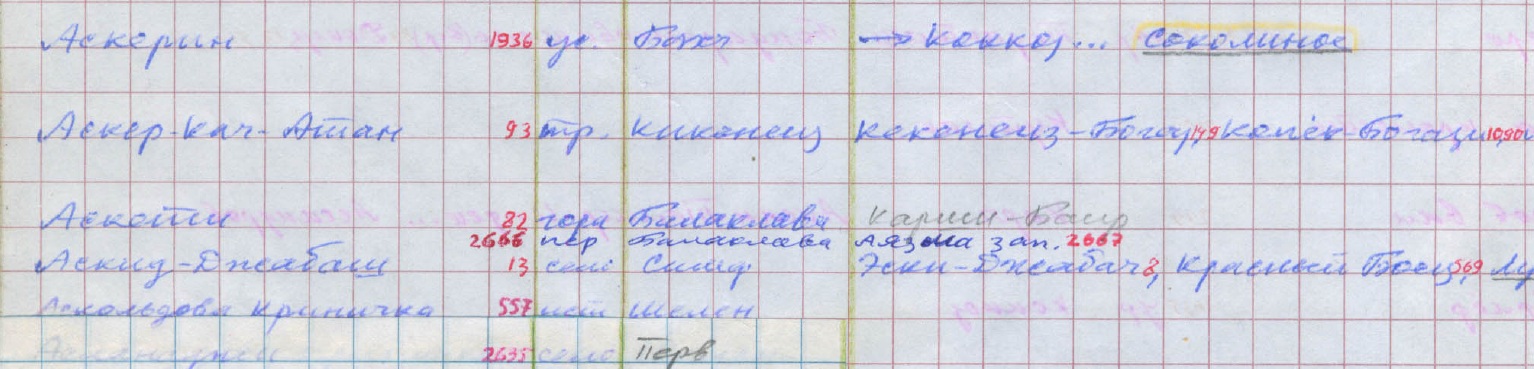 Аскерин 1936 ус. Бахч → Коккоз... Соколиное
Аскер-Кач-Атан 93 тр. Кикенеиз Кекенеиз-Богаз, 149 Копек-Богаз
Аскети 82 гора Балаклава Карши-Баир
2666 пер Балаклава Аязма зап. 2667
Аскид-Джабаш 13 село Симф Эски-Джабач 8, Красный Боец, 569
Аскольдова Криничка 557 ист Шелен
2635 село Перв